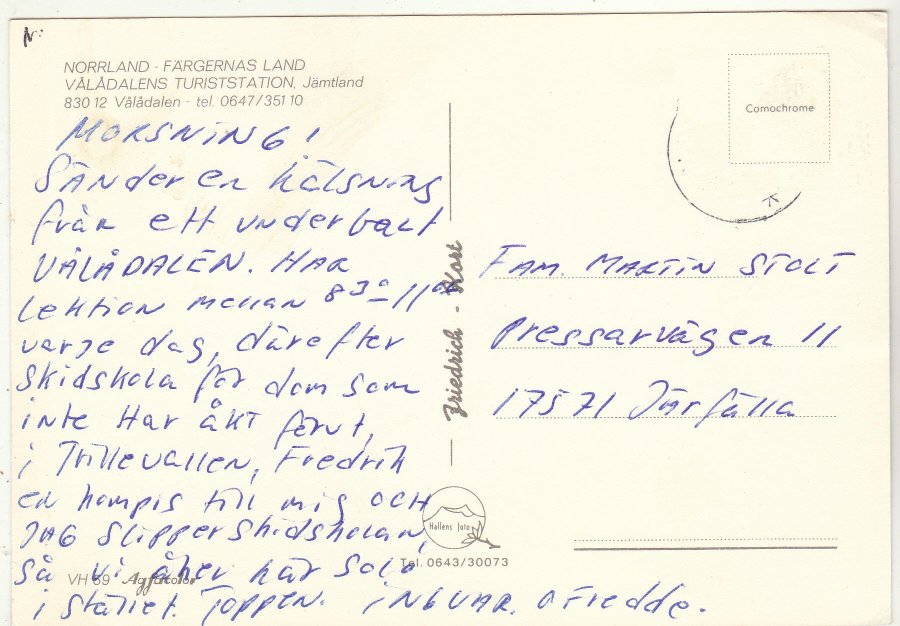 NORRLAND - FÄRGERNAS LAND
VÅLÅDALENS TURISTSTATION, Jämtland
830 12 Vålådalen - tel. 0647/351 10
MORSNING!
SÄNDER en hälsning
från ett underbart
VÅLÅDALEN. HAR
Lektion mellan 8³⁰-11⁰⁰
varje dag, därefter
Skidskola för dom som
inte HAR åkt förut,
i Trillevallen, Fredrik
en kompis till mig OCH
JAG SLIPPER Skidskolan,
så vi åker här solo
i stället. TOPPEN. INGVAR. o Fredde.
VH 69 Agfacolor
Friedrich - Kort
Hallens foto
Tel. 0643/30073
Comochrome
FAM. MARTIN STOLT
Pressarvägen 11
17571 Järfälla